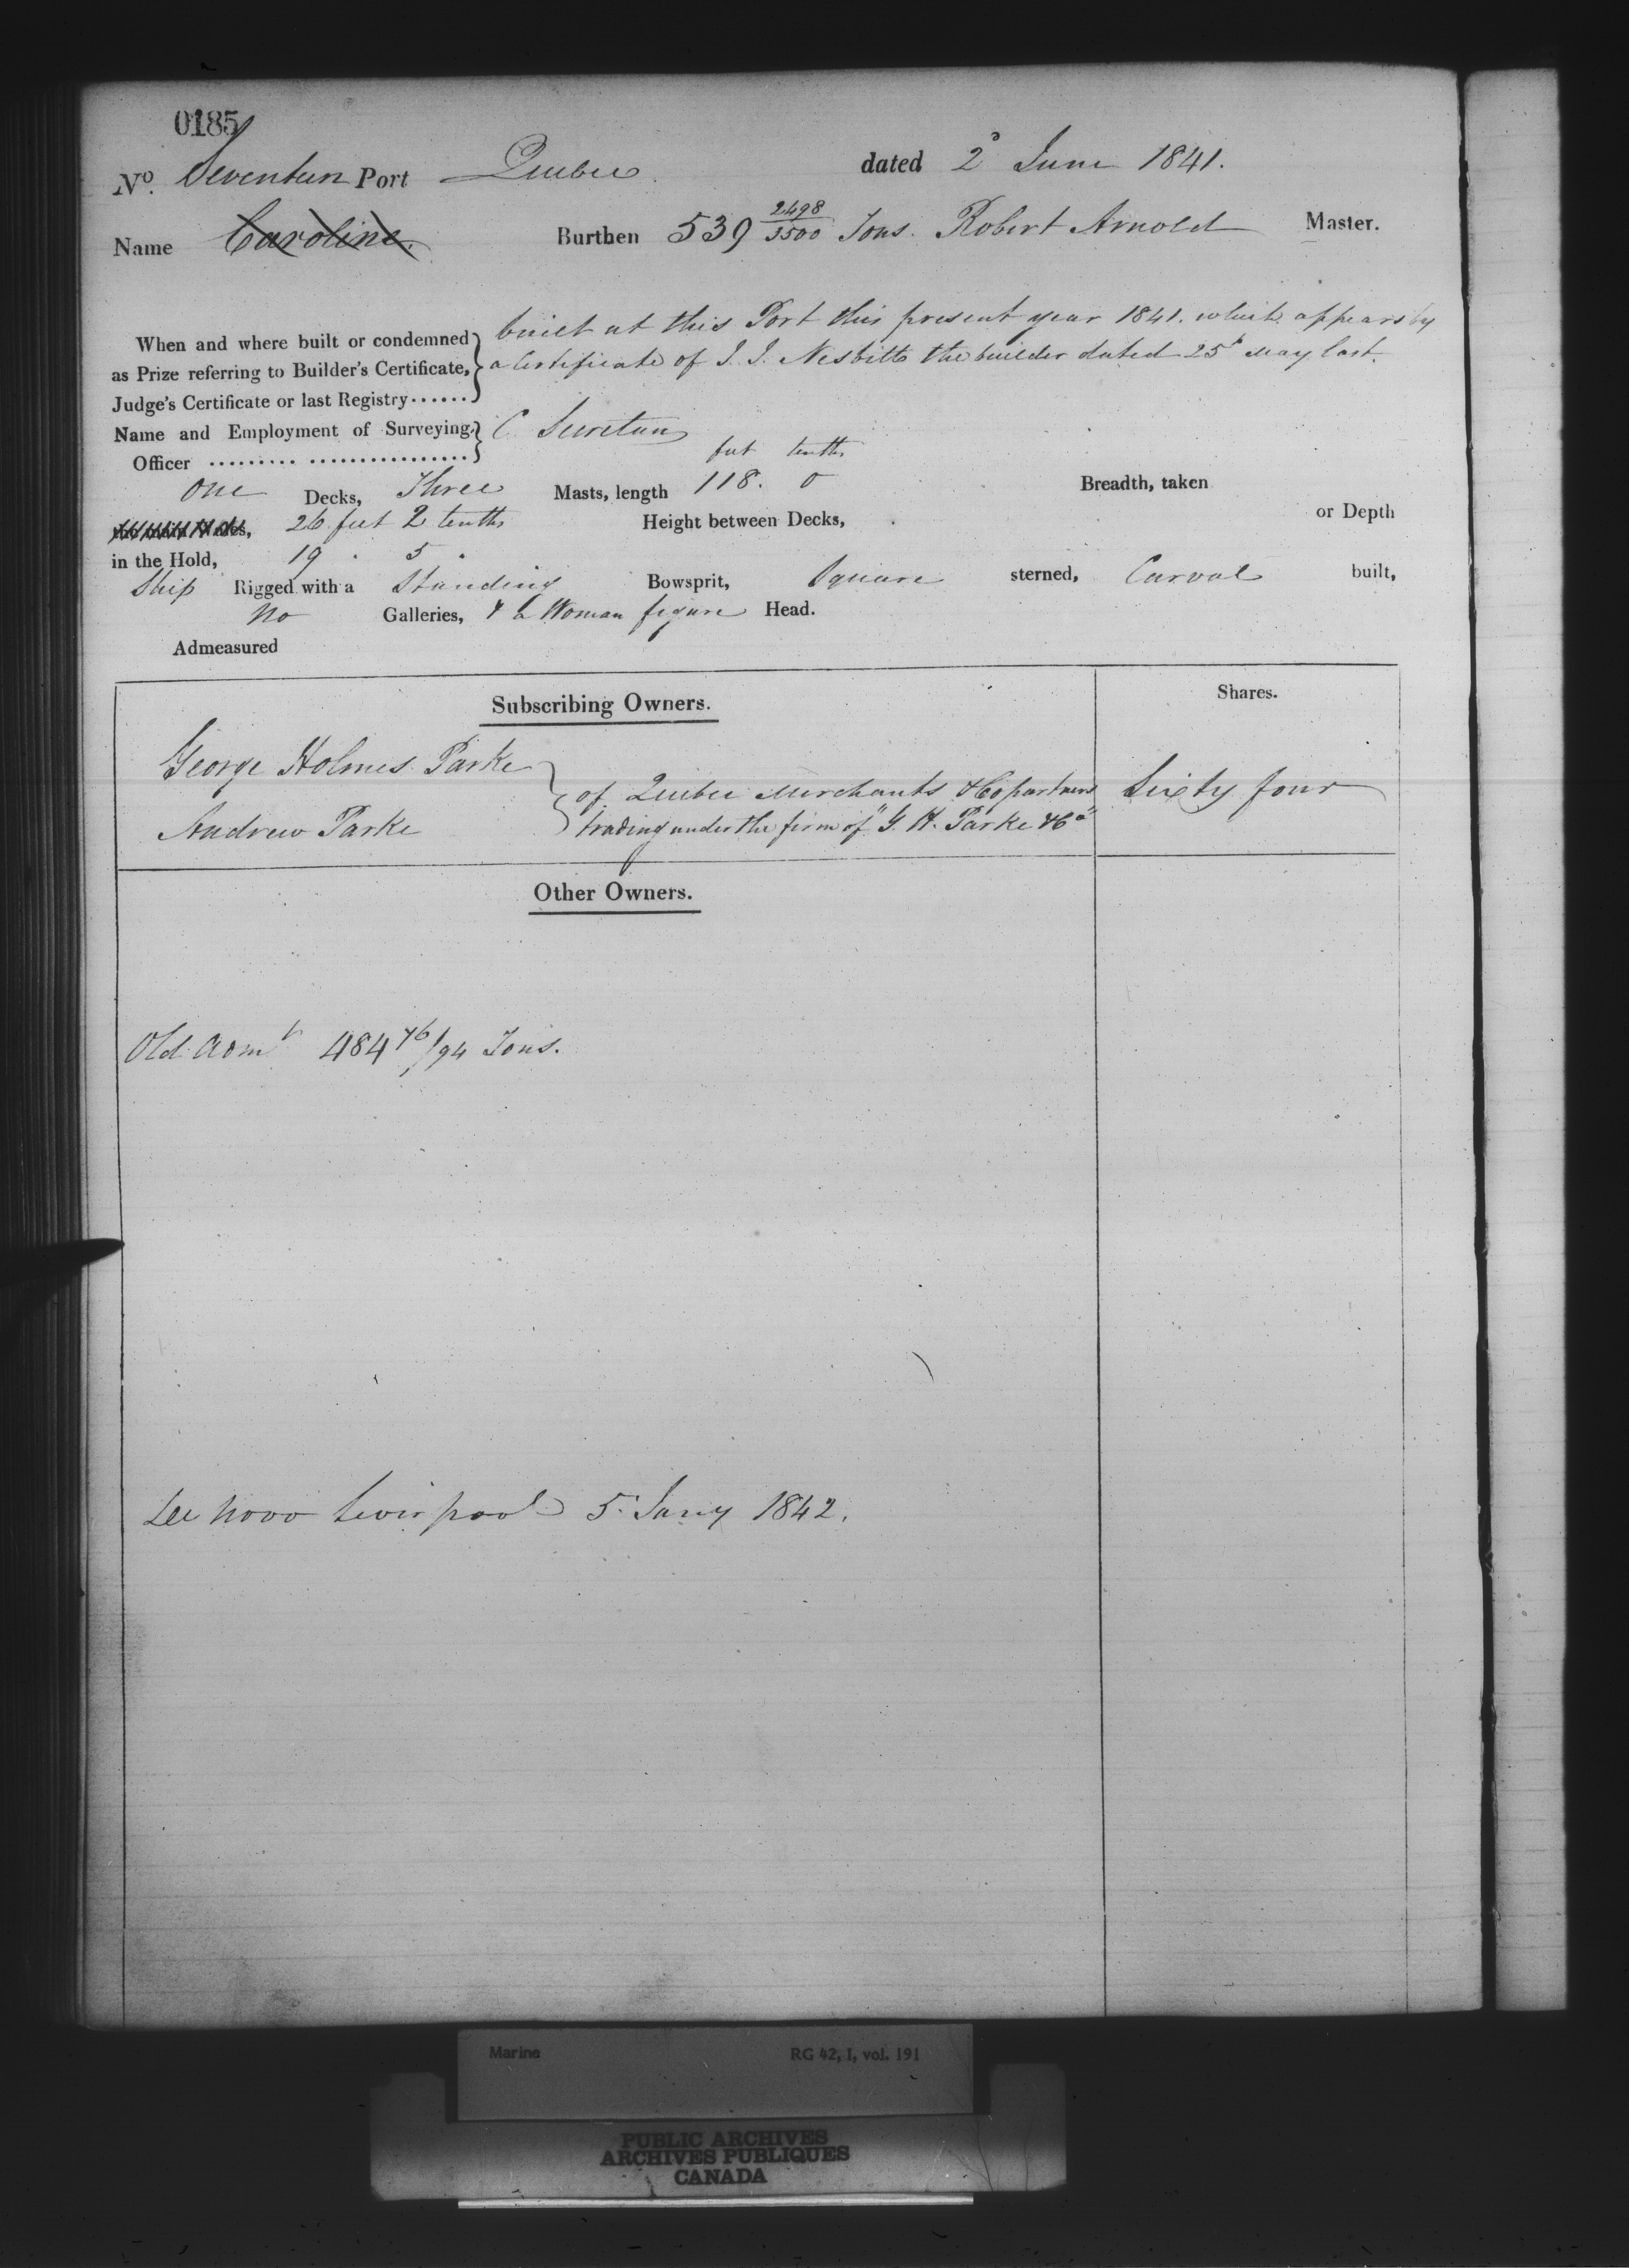 0185
No. Seventeen Port Quebec dated 2d June 1841.
Name Caroline. Burthen 539 2498/3500 Tons. Robert Arnold Master.
built at this Port this present year 1841. which appears by
When and where built or condemned
a Certificate of J. J. Nesbitt the builder dated 25th May last.
as Prize referring to Builder's Certificate,
Judge's Certificate or last Registry......
Name and Employment of Surveying C Secretan
Officer ......... ................
feet tenths
One Decks, Three Masts, length 118. 0 Breadth, taken
26 feet 2 tenths Height between Decks, or Depth
in the Hold, 19 . 5 .
Ship Rigged with a Standing Bowsprit, Square sterned, Carvel built,
No Galleries, & a Woman figure Head.
Admeasured
Subscribing Owners. Shares.
George Holmes Parke
of Quebec Merchants & Copartners Sixty four
Andrew Parke trading under the firm of "G. H. Parke & Co"
Other Owners.
Old Admt 484 76/94 Tons.
De novo Liverpool 5 Jany 1842.
Marine RG 42, I, vol. 191
PUBLIC ARCHIVES
ARCHIVES PUBLIQUES
CANADA